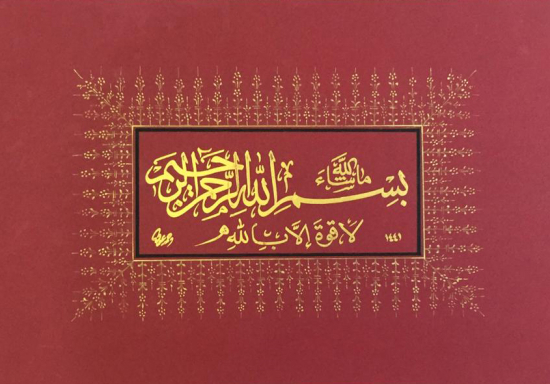 بسم الله الرحمن الرحيم
ما شاء الله
لا قوة إلا بالله
١٤٤١